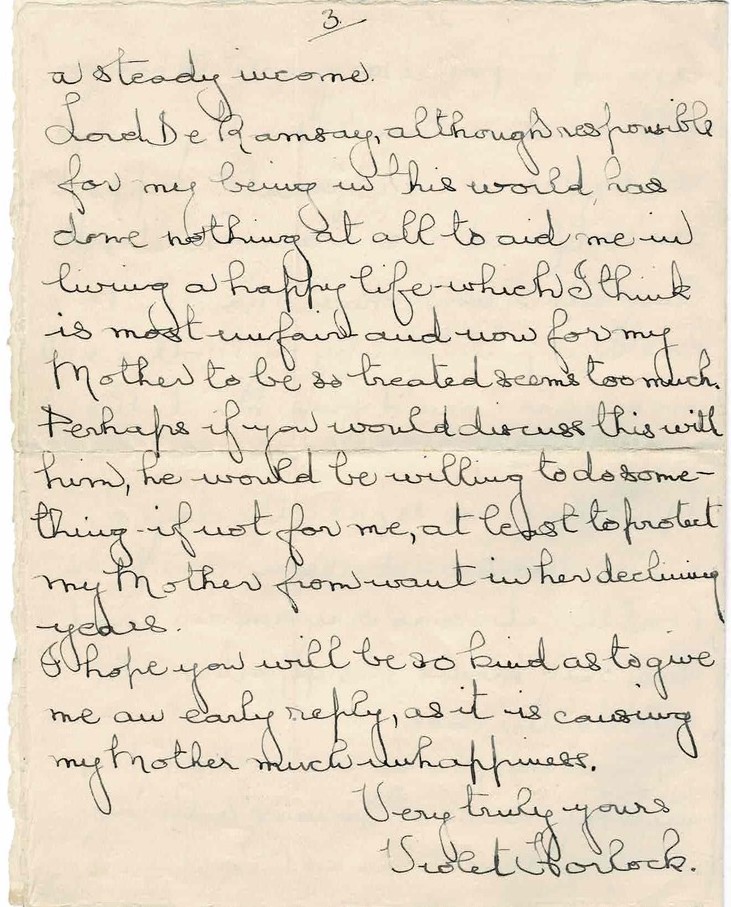 3.
a steady income.
Lord De Ramsay, although responsible
for my being in this world, has
done nothing at all to aid me in
living a happy life - which I think
is most unfair - and now for my
Mother to be so treated seems too much.
Perhaps if you would discuss this with
him, he would be willing to do some-
thing - if not for me, at least to protect
my Mother from want in her declining
years.
I hope you will be so kind as to give
me an early reply, as it is causing
my Mother much unhappiness.
Very truly yours
Violet Horlock.